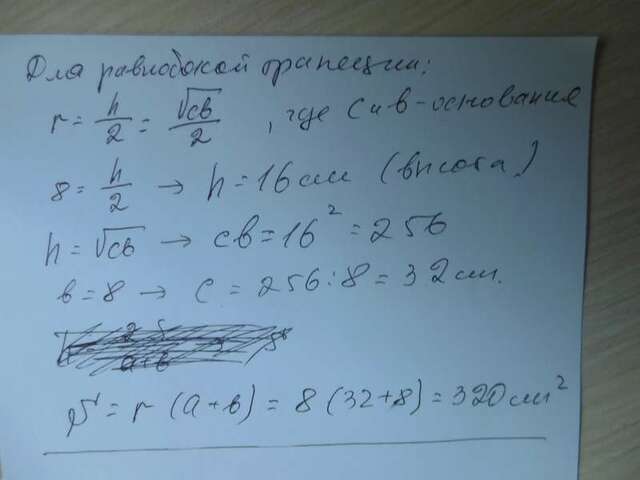 Для равнобокой трапеции:
r = h/2 = √cв/2, где c и в - основания
8 = h/2 → h = 16 см (высота)
h = √cв → cв = 16² = 256
в = 8 → c = 256 : 8 = 32 см.
S = r (a + в) = 8 (32 + 8) = 320 см²